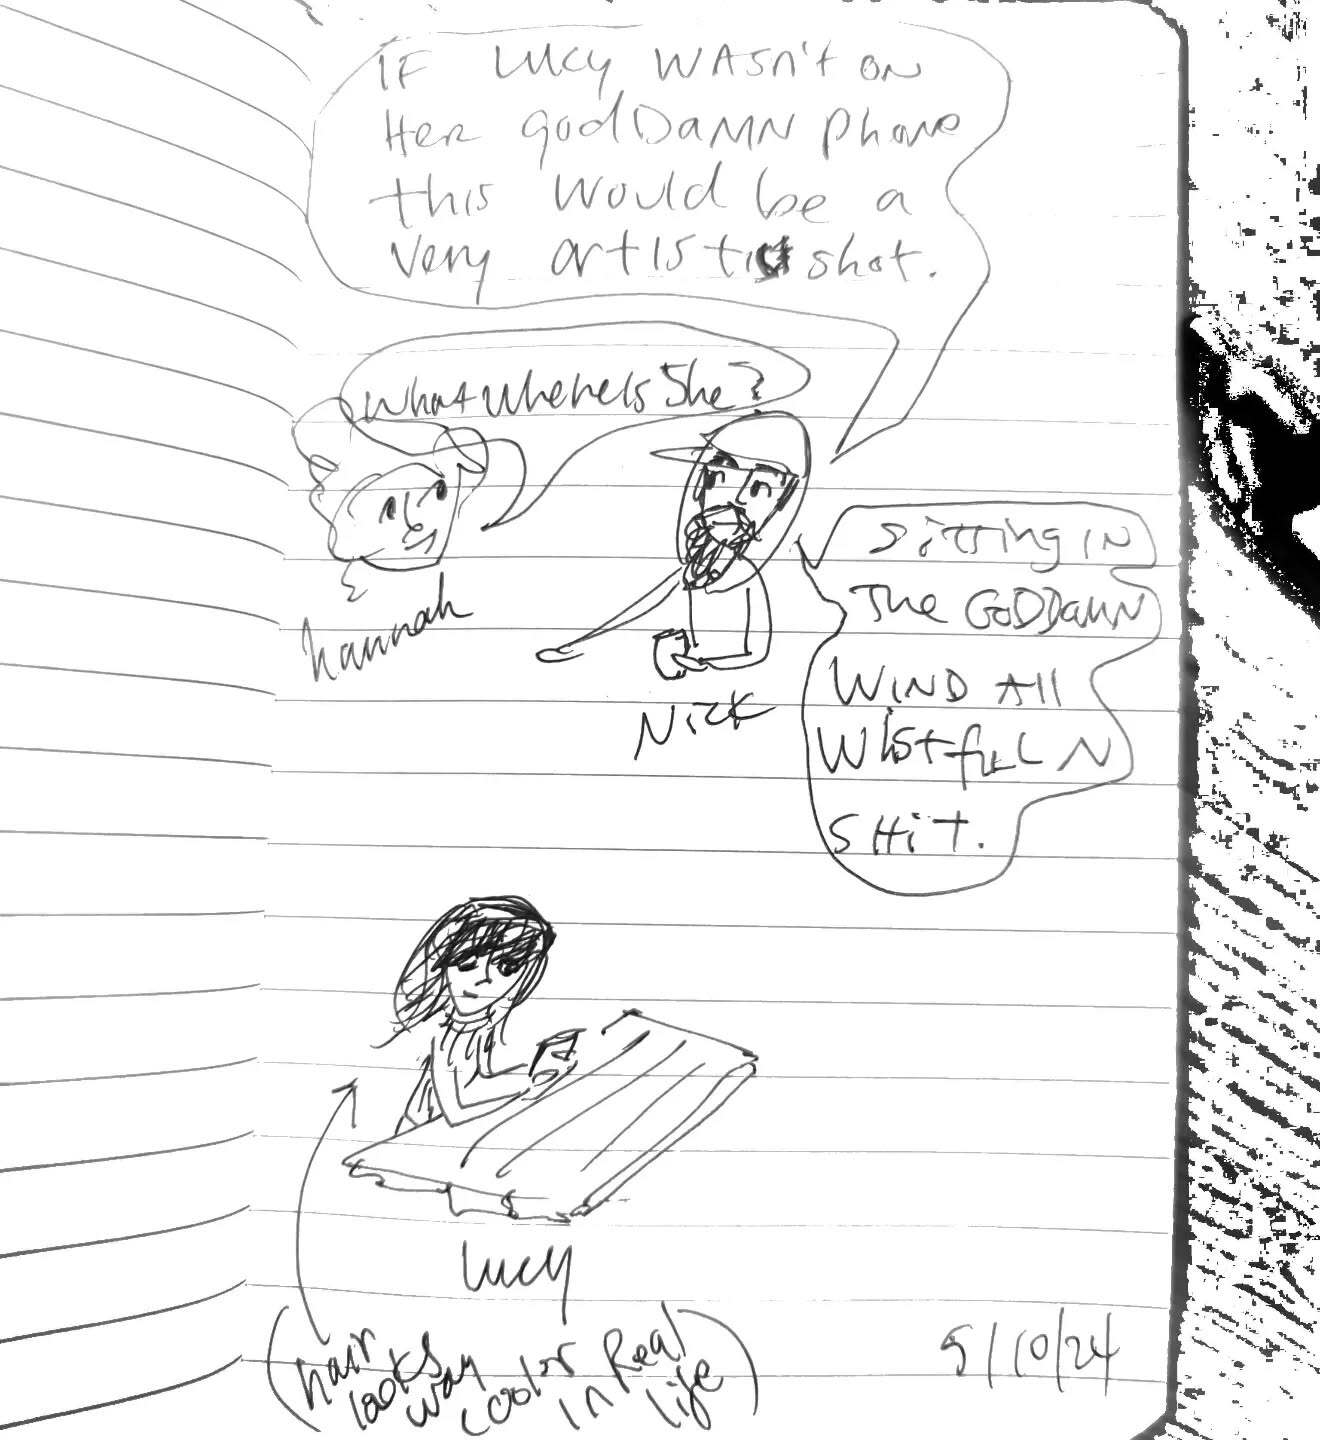 IF LUCY WASn't ON
Her godDaMN phone
this would be a
very artistic shot.
What where Is She?
hannah
Sitting IN
The GoDDamN
WIND All
WistfuL N
SHiT.
Nick
Lucy
(hair looks way cooler in Real life)
5/10/24